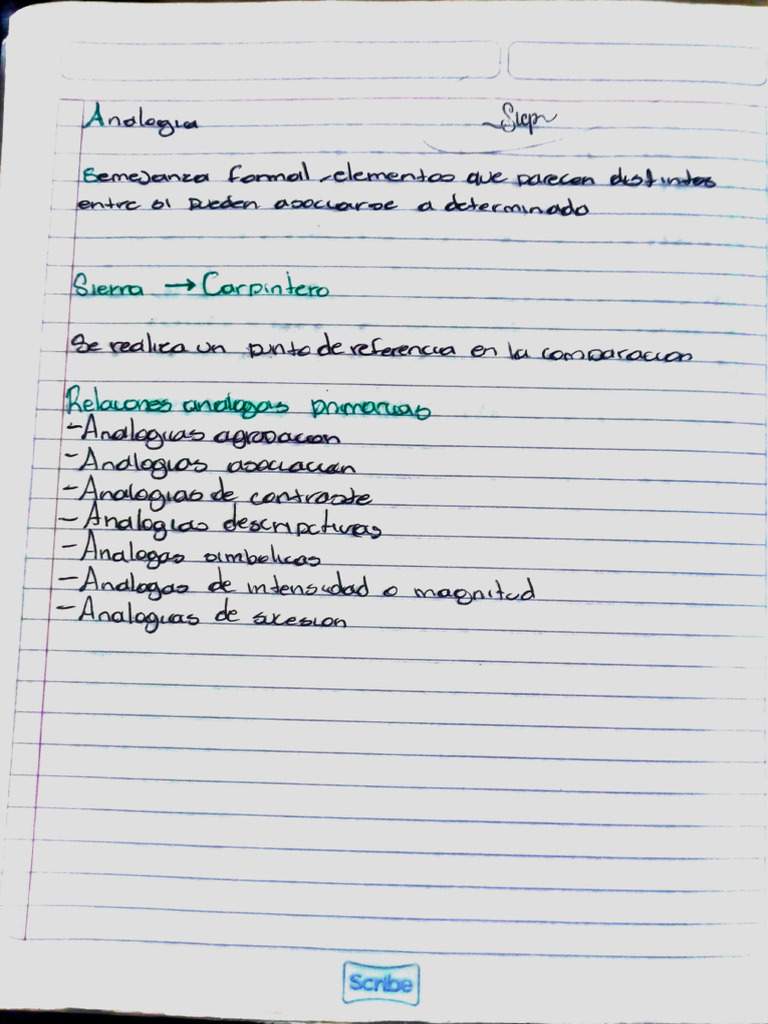 Analogia
Semejanza formal, elementos que parecen distintos
entre si pueden asociarse a determinado
Sierra → Carpintero
Se realiza un punto de referencia en la comparacion
Relaciones analogas primarias
- Analogias agrupacion
- Analogias asociacion
- Analogias de contraste
- Analogias descripcturas
- Analogas simbolicas
- Analogas de intensidad o magnitud
- Analogias de sucesion
Scribe